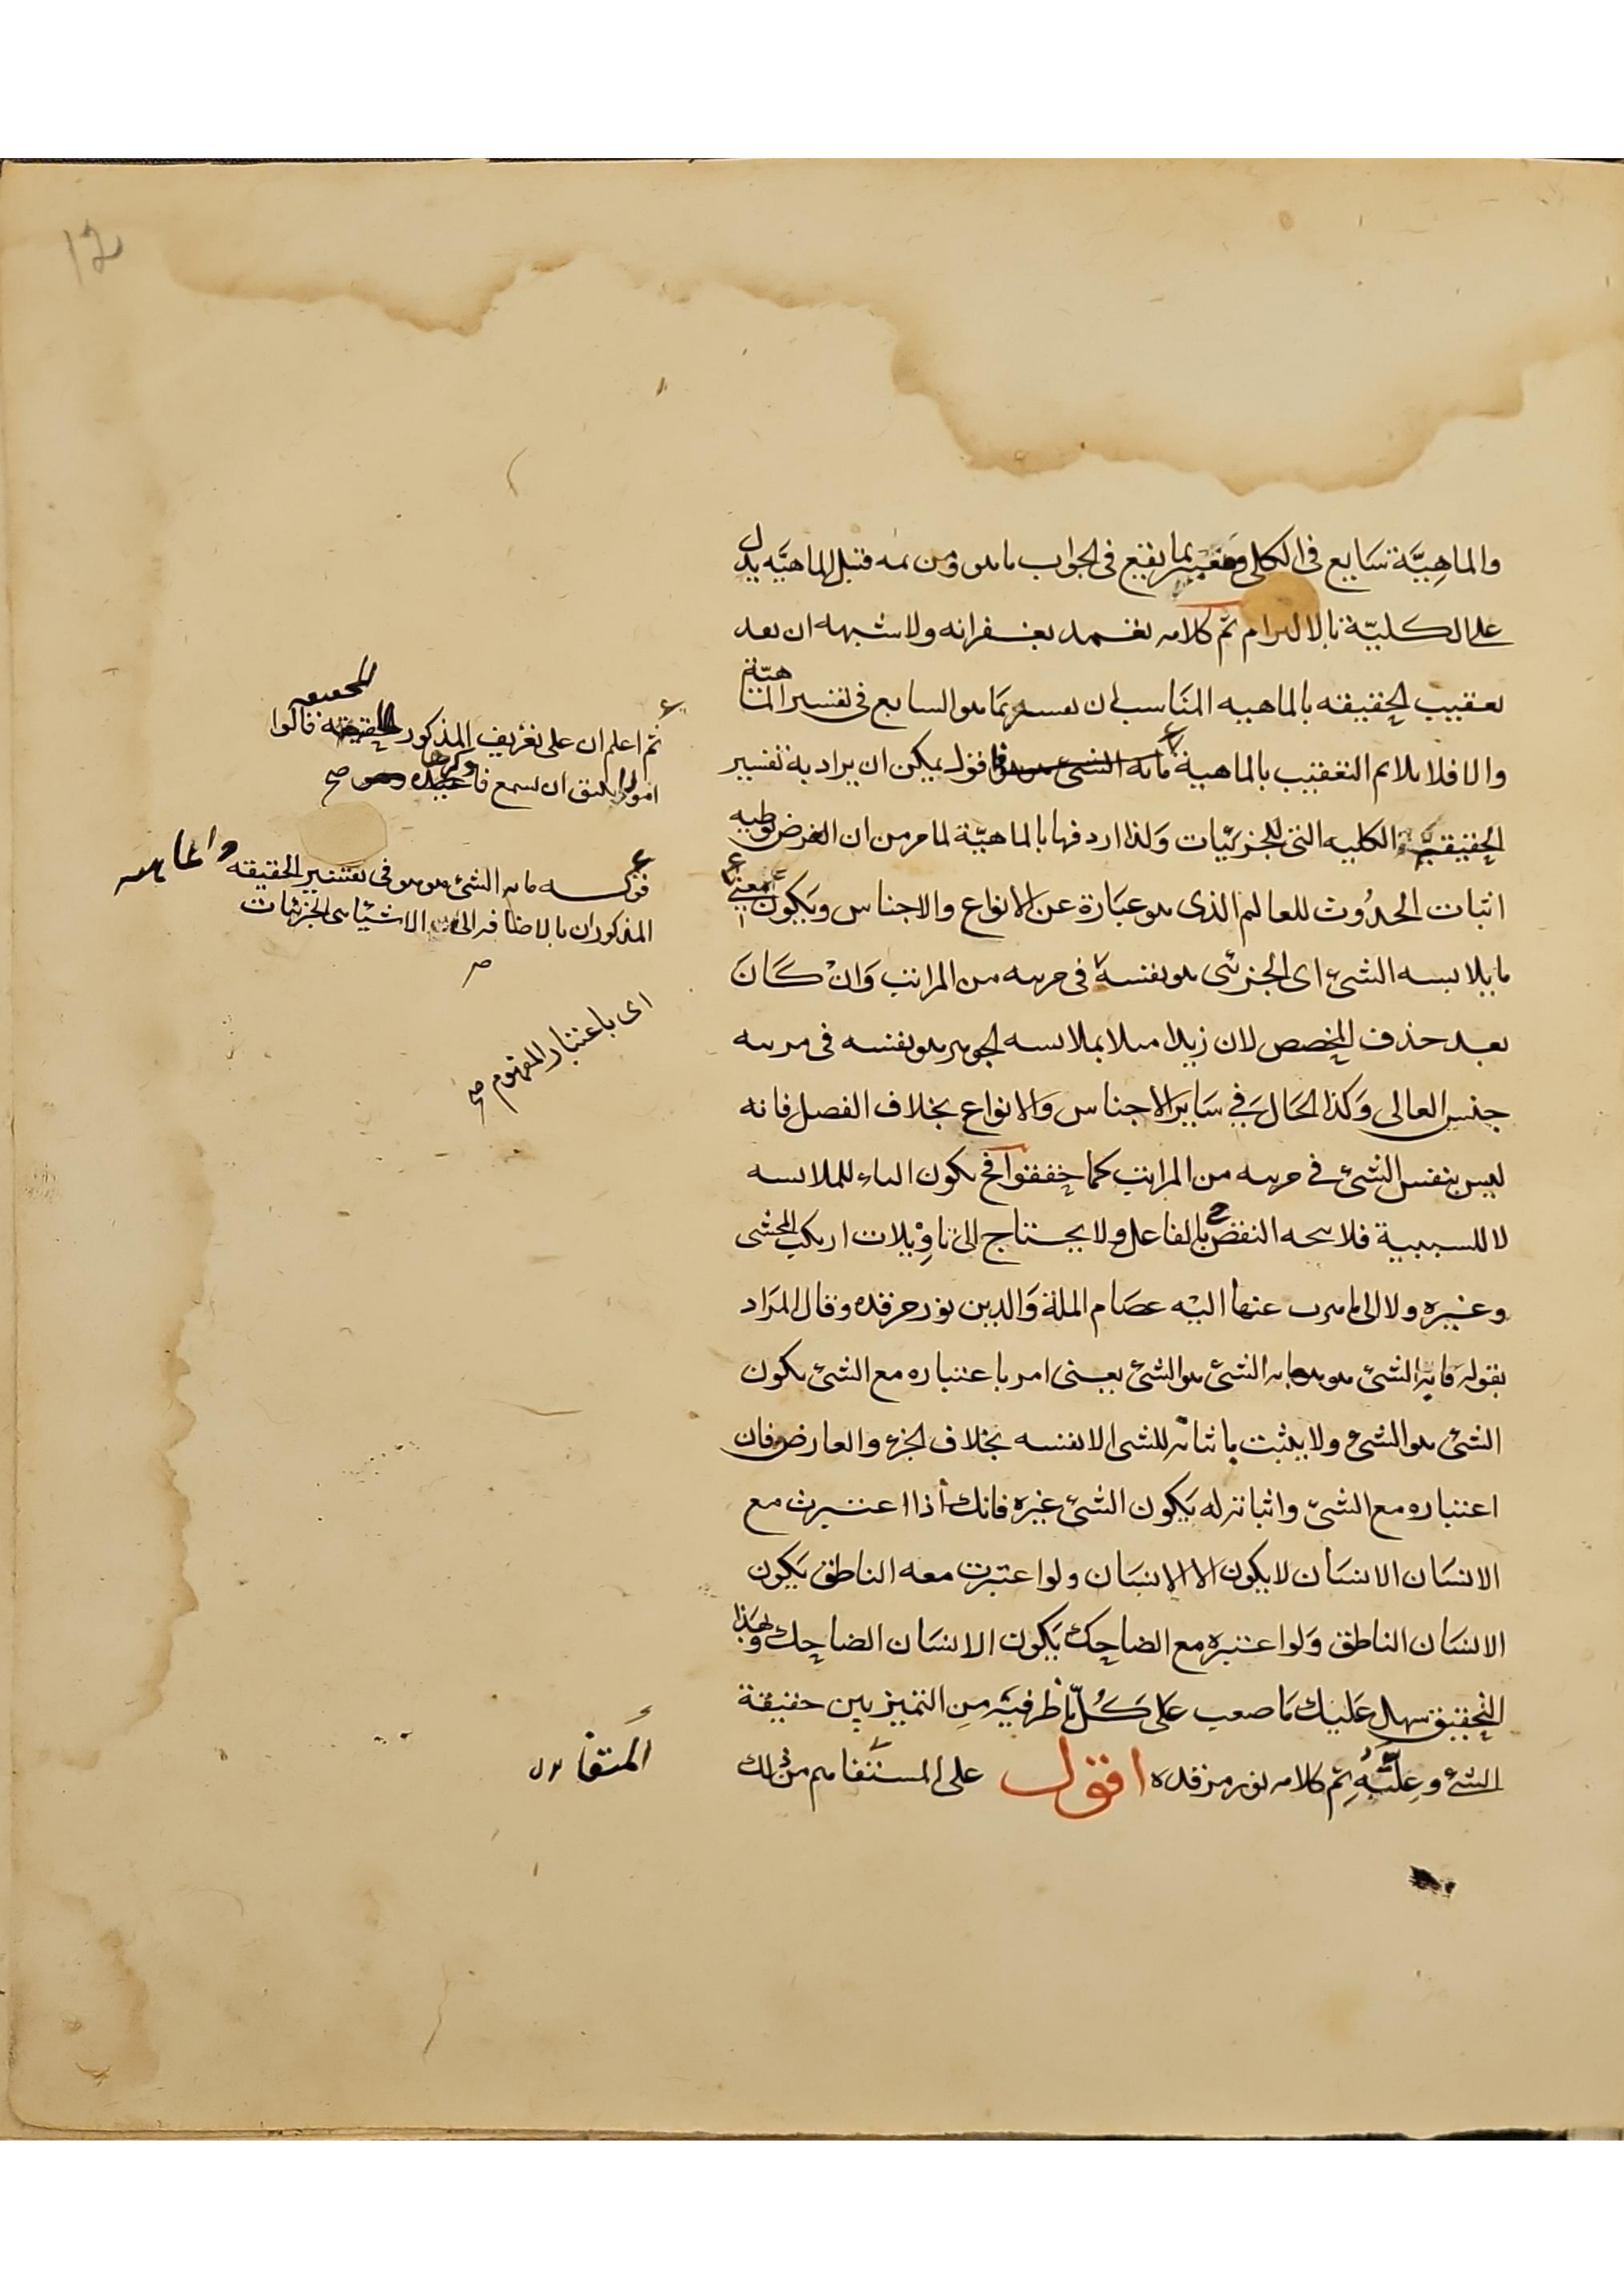 والماهِيَّة شَايع فى الكلى وتفسر بما يقع فى الجواب ماهو ومن ثمه قيل الماهيَّه يدل
على الكليّة بالالتزام تم كلامه تغمد بغفرانه ولاشبهه ان بعد
تعقيب الحقيقه بالماهيه المناسب ان تفسر بما هو السايع فى تفسير الماهيّة
والا فلا يلايم التعقيب بالماهية فاقول يمكن ان يراد به تفسير
الحقيقة الكليه التى للجزئيات وَلذا اردفها بالماهيّة لما مر من ان الغرض توطيه
اثبات الحدُوث للعالم الذى هو عبَارة عن الانواع والاجناس ويَكون معنى
مايلابسه الشئ اى الجزئى هو نفسه فى مرتبه من المراتب وَانْ كَانَ
بعد حذف المخصص لان زيدا مثلا بملابسه الجوهر هو نفسه فى مرتبه
جنس العالى وَكذا الحَال فِي سَاير الاجناس وَالانواع بخلاف الفصل فانه
ليس بنفس الشئ فى مرتبه من المراتب كما حققوا فح تكون الباء للملابسه
لا للسببية فلا يتجه النقض بالفاعل ولا يحتاج الى تاوِيْلات ارتكب المحشى
وغيره ولا الى ما ذهب عنها اليْه عصَام الملة وَالدين نور مرقده وقال المرَاد
بقوله مَا به الشئ هو هو ما به الشئ هو الشئ يعنى امر باعتباره مع الشئ يكون
الشئ هو الشئ ولا يثبت باثباته للشئ الا نفسه بخلاف الجزء والعارض فان
اعتباره مع الشئ واثباته له يَكون الشئ غيره فانك اذا اعتبرت مع
الانسَان الانسَان لا يكون الا الانسَان ولو اعتبرت معه الناطق يَكون
الانسَان الناطق وَلو اعتبره مع الضاحِك يَكون الانسَان الضاحِك وَبهَذا
التحقيق سهل عَليك مَا صعب عَلى كُلّ ناظر فيه مِن التميز بين حقيقة
الشئ وعِلَّتهِ تم كلامه نور مرقده اقول على المستفاهم من ذلك
ثم اعلم ان على تعريف المذكور للحقيقه قالوا
امورا يليق ان تسمع فا وكرها صح
قوله ما به الشئ هو هو فى تفسير الحقيقه والماهيه
المذكوران بالاضافه الى الاشيا اى الجزئيات
صح
اى باعتبار المفهوم صح